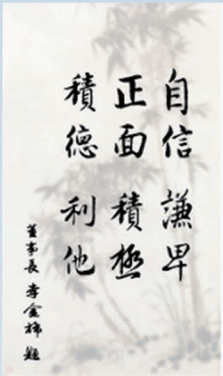 自信 謙卑
正面 積極
積德 利他
董事長 李金𫞩 題